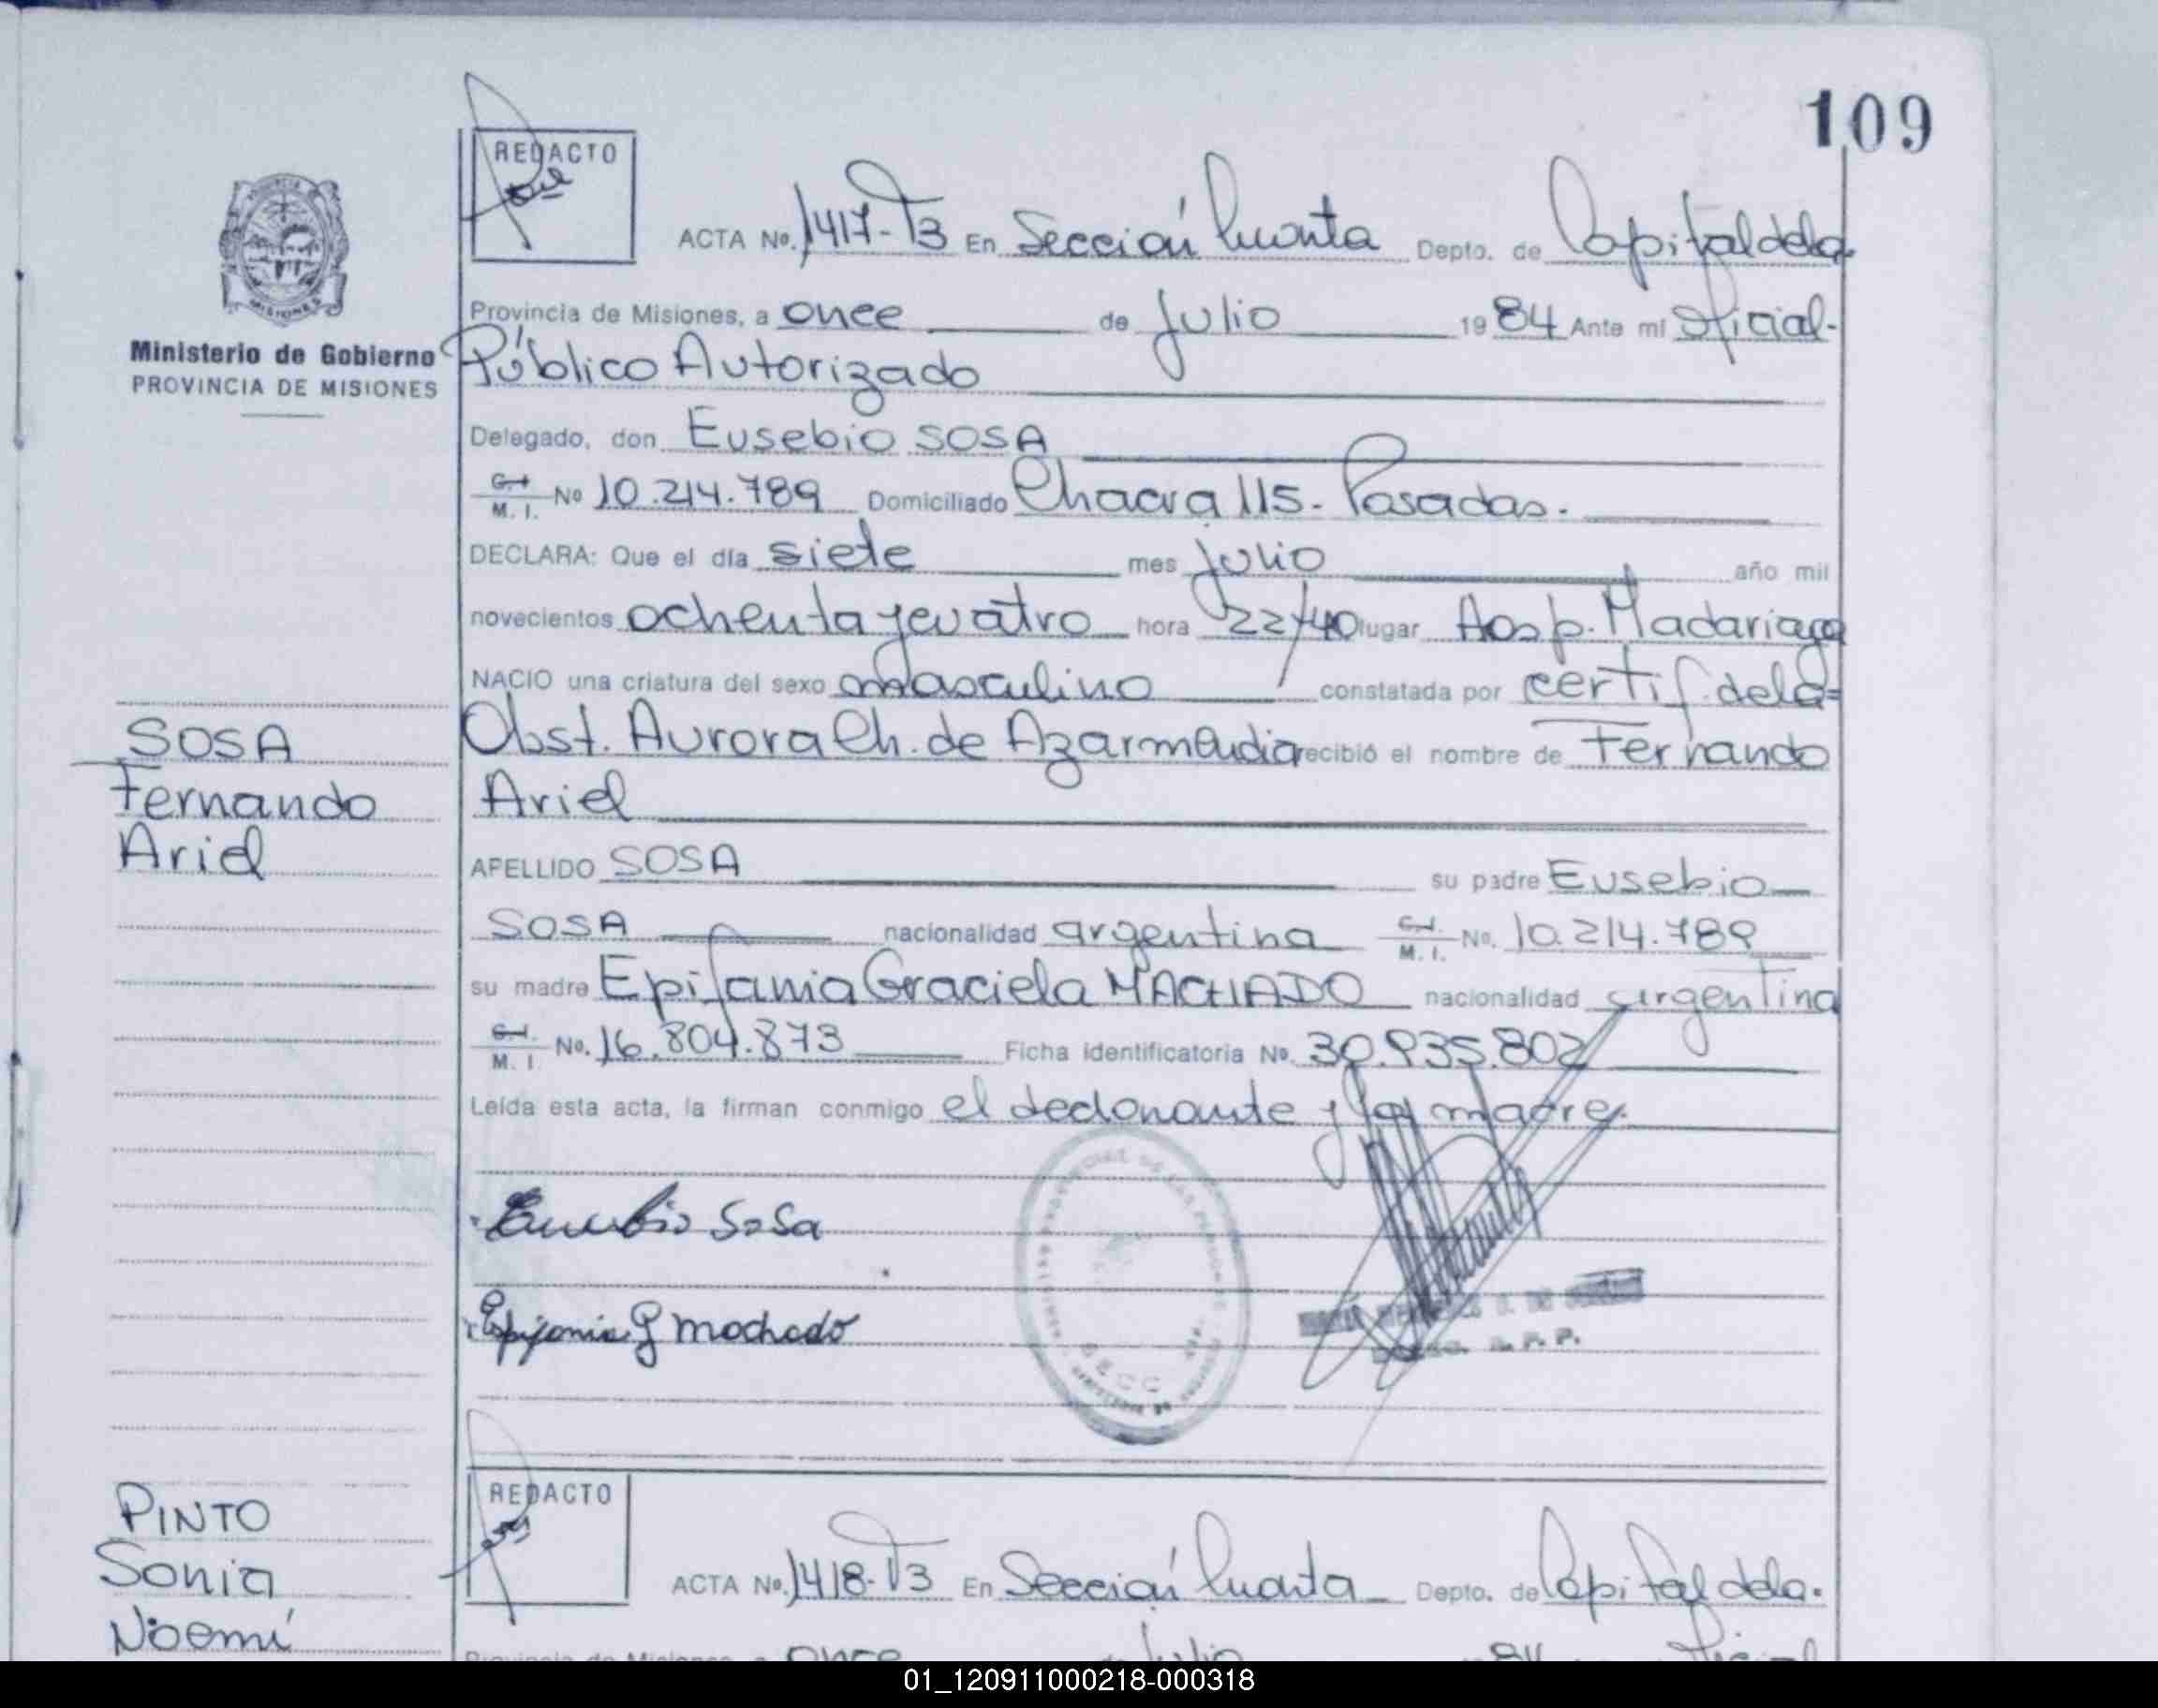 109
REDACTO
ACTA No. 1417-T3 En Sección Cuarta Depto. de Capital de la
Provincia de Misiones, a once de Julio 1984 Ante mi Oficial-
Ministerio de Gobierno
PROVINCIA DE MISIONES
Público Autorizado
Delegado, don Eusebio SOSA
C.I. M.I. No 10.214.789 Domiciliado Chacra 115- Posadas.
DECLARA: Que el día siete mes Julio año mil
novecientos ochenta y cuatro hora 22/40 lugar Hosp. Madariaga
NACIO una criatura del sexo masculino constatada por certif. de la=
Obst. Aurora Ch. de Azarmendia recibió el nombre de Fernando
Ariel
SOSA
Fernando
Ariel
APELLIDO SOSA su padre Eusebio
SOSA nacionalidad argentina C.I. M.I. No. 10.214.789
su madre Epifania Graciela MACHADO nacionalidad argentina
C.I. M.I. No. 16.804.873 Ficha identificatoria No. 30.935.802
Leída esta acta, la firman conmigo el declarante y la madre.
Eusebio Sosa
Epifania G Machado
PINTO
Sonia
Noemí
REDACTO
ACTA No. 1418-T3 En Sección Cuarta Depto. de Capital de la.
Provincia de Misiones, a once de Julio 84 Oficial
01_120911000218-000318